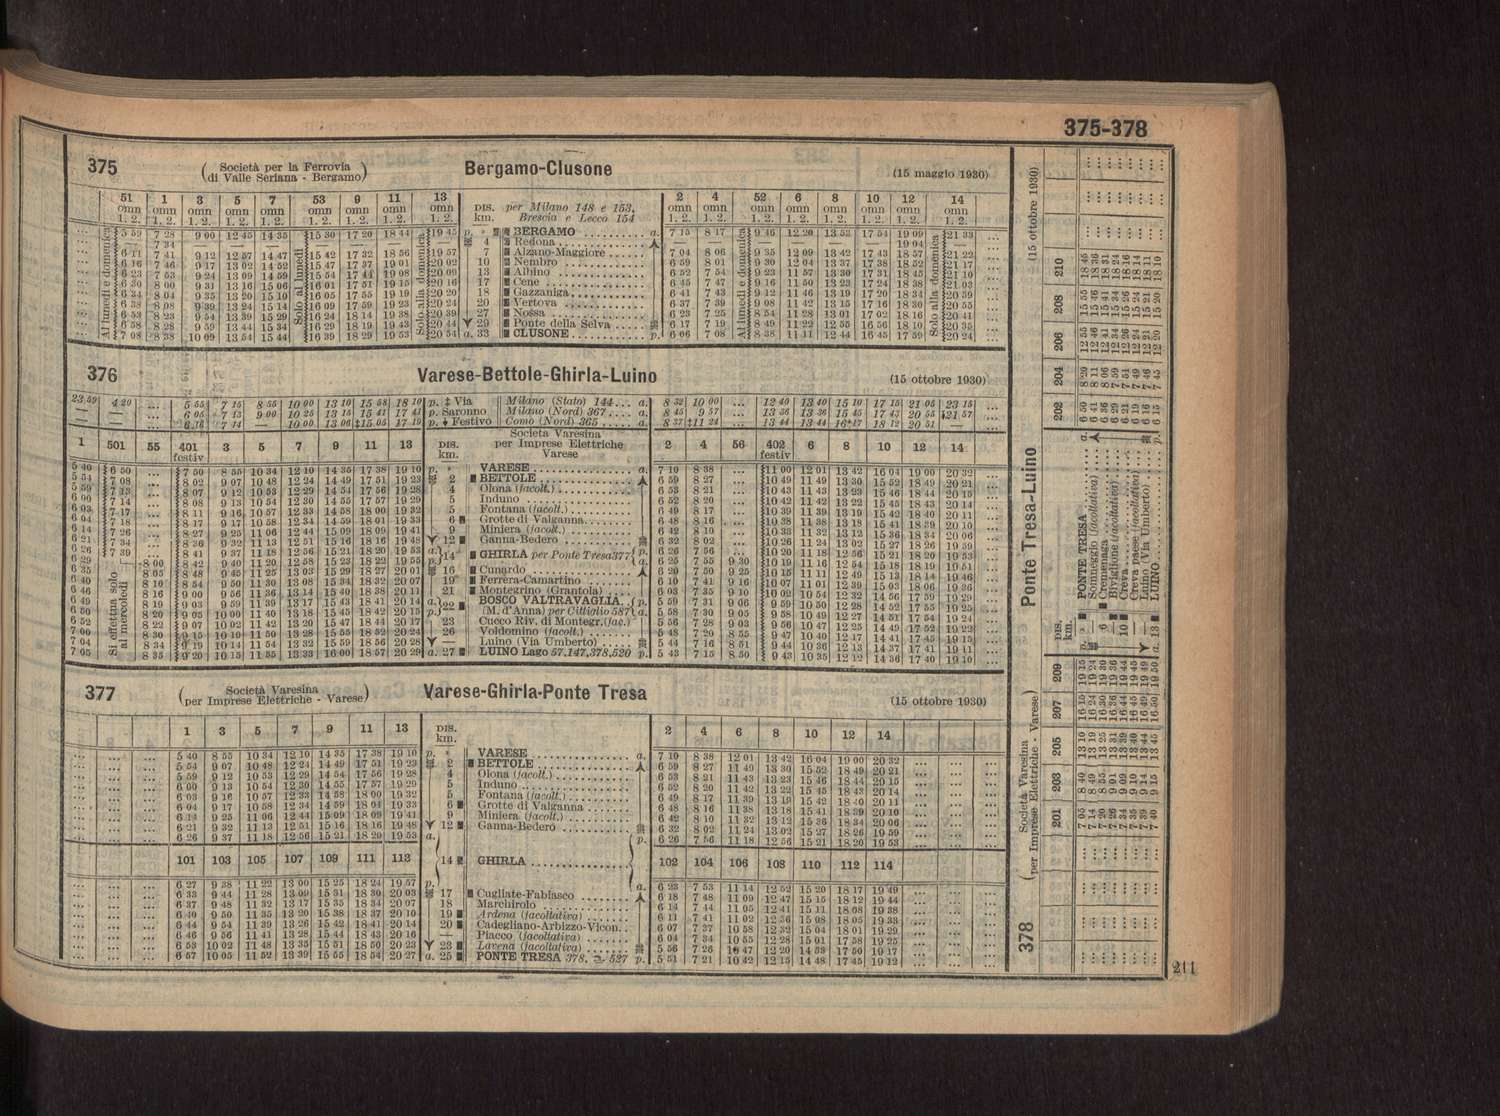 375-378
375 ( Società per la Ferrovia di Valle Seriana - Bergamo ) Bergamo-Clusone (15 maggio 1930)
51 1 3 5 7 53 9 11 13 DIS. km. per Milano 148 e 153, Brescia e Lecco 154 2 4 52 6 8 10 12 14
omn omn omn omn omn omn omn omn omn omn omn omn omn omn omn omn omn
1. 2. 1. 2. 1. 2. 1. 2. 1. 2. 1. 2. 1. 2. 1. 2. 1. 2. 1. 2. 1. 2. 1. 2. 1. 2. 1. 2. 1. 2. 1. 2. 1. 2.
5 59 7 28 9 00 12 45 14 35 15 30 17 20 18 44 19 45 p. » BERGAMO a. 7 15 8 17 9 46 12 20 13 53 17 54 19 09 21 33
7 34 4 Redona 19 04
6 11 7 41 9 12 12 57 14 47 15 42 17 32 18 56 19 57 7 Alzano-Maggiore 7 04 8 06 9 35 12 09 13 42 17 43 18 57 21 22
6 16 7 46 9 17 13 02 14 52 15 47 17 37 19 01 20 02 10 Nembro 6 59 8 01 9 30 12 04 13 37 17 38 18 52 21 17
6 23 7 53 9 24 13 09 14 59 15 54 17 44 19 08 20 09 13 Albino 6 52 7 54 9 23 11 57 13 30 17 31 18 45 21 10
6 30 8 00 9 31 13 16 15 06 16 01 17 51 19 15 20 16 17 Cene 6 45 7 47 9 16 11 50 13 23 17 24 18 38 21 03
6 34 8 04 9 35 13 20 15 10 16 05 17 55 19 19 20 20 18 Gazzaniga 6 41 7 43 9 12 11 46 13 19 17 20 18 34 20 59
6 38 8 08 9 39 13 24 15 14 16 09 17 59 19 23 20 24 20 Vertova 6 37 7 39 9 08 11 42 13 15 17 16 18 30 20 55
6 53 8 23 9 54 13 39 15 29 16 24 18 14 19 38 20 39 27 Nossa 6 23 7 25 8 54 11 28 13 01 17 02 18 16 20 41
6 58 8 28 9 59 13 44 15 34 16 29 18 19 19 43 20 44 29 Ponte della Selva 6 17 7 19 8 49 11 22 12 55 16 56 18 10 20 35
7 08 8 38 10 09 13 54 15 44 16 39 18 29 19 53 20 54 a. 33 CLUSONE p. 6 06 7 08 8 38 11 11 12 44 16 45 17 59 20 24
Al lunedì e domenica
Solo al lunedì
Solo alla domenica
Al lunedì e domenica
Solo alla domenica
376 Varese-Bettole-Ghirla-Luino (15 ottobre 1930)
23 59 4 20 ... 5 55 7 15 8 55 10 00 13 10 15 58 18 10 p. ‡ Via Milano (Stato) 144 a. 8 32 10 00 ... 12 40 13 40 15 10 17 15 21 05 23 15
— — ... 6 05 7 13 9 00 10 25 13 15 15 41 17 41 p. Saronno Milano (Nord) 367 a. 8 45 9 57 ... 13 36 13 36 15 45 17 43 20 55 21 57
— — ... 6 16 7 14 — 10 00 13 06 ‡15 05 17 19 p. Festivo Como (Nord) 365 a. 8 37 ‡11 24 ... 13 44 13 44 16 17 18 12 20 51 —
1 501 55 401 festiv 3 5 7 9 11 13 DIS. km. Società Varesina per Imprese Elettriche Varese 2 4 56 402 festiv 6 8 10 12 14
5 40 6 50 ... 7 50 8 55 10 34 12 10 14 35 17 38 19 10 p. » VARESE a. 7 10 8 38 ... 11 00 12 01 13 42 16 04 19 00 20 32
5 54 7 08 ... 8 02 9 07 10 48 12 24 14 49 17 51 19 23 2 BETTOLE 6 59 8 27 ... 10 49 11 49 13 30 15 52 18 49 20 21
5 59 7 13 ... 8 07 9 12 10 53 12 29 14 54 17 56 19 28 4 Olona (facolt.) 6 53 8 21 ... 10 43 11 43 13 23 15 46 18 44 20 15
6 00 7 14 ... 8 08 9 13 10 54 12 30 14 55 17 57 19 29 5 Induno 6 52 8 20 ... 10 42 11 42 13 22 15 45 18 43 20 14
6 03 7 17 ... 8 11 9 16 10 57 12 33 14 58 18 00 19 32 5 Fontana (facolt.) 6 49 8 17 ... 10 39 11 39 13 19 15 42 18 40 20 11
6 04 7 18 ... 8 17 9 17 10 58 12 34 14 59 18 01 19 33 6 Grotte di Valganna 6 48 8 16 ... 10 38 11 38 13 18 15 41 18 39 20 10
6 14 7 26 ... 8 27 9 25 11 06 12 44 15 09 18 09 19 41 9 Miniera (facolt.) 6 42 8 10 ... 10 33 11 32 13 12 15 36 18 34 20 06
6 21 7 34 ... 8 36 9 32 11 13 12 51 15 16 18 16 19 48 12 Ganna-Bedero 6 32 8 02 ... 10 26 11 24 13 02 15 27 18 26 19 59
6 26 7 39 ... 8 41 9 37 11 18 12 56 15 21 18 20 19 53 a. 14 GHIRLA per Ponte Tresa 377 p. 6 26 7 56 ... 10 20 11 18 12 56 15 21 18 20 19 53
6 29 8 00 8 42 9 40 11 20 12 58 15 23 18 22 19 55 p. a. 6 25 7 55 9 30 10 19 11 16 12 54 15 18 18 19 19 51
6 35 8 05 8 48 9 45 11 25 13 03 15 28 18 27 20 01 16 Cunardo 6 20 7 50 9 25 10 15 11 11 12 49 15 13 18 14 19 46
6 40 8 10 8 54 9 50 11 30 13 08 15 34 18 32 20 07 19 Ferrera-Camartino 6 10 7 41 9 16 10 07 11 01 12 39 15 03 18 06 19 36
6 46 8 16 9 00 9 56 11 36 13 14 15 40 18 38 20 11 21 Montegrino (Grantola) 6 03 7 35 9 10 10 02 10 54 12 32 14 56 17 59 19 29
6 49 8 19 9 03 9 59 11 39 13 17 15 43 18 41 20 14 a. 22 BOSCO VALTRAVAGLIA p. 5 59 7 31 9 06 9 59 10 50 12 28 14 52 17 55 19 25
6 50 8 20 9 05 10 00 11 40 13 18 15 45 18 42 20 15 p. (M. d'Anna) per Cittiglio 587 a. 5 58 7 30 9 05 9 58 10 49 12 27 14 51 17 54 19 24
6 52 8 22 9 07 10 02 11 42 13 20 15 47 18 44 20 17 23 Cucco Riv. di Montegr. (fac.) 5 56 7 28 9 03 9 56 10 47 12 25 14 49 17 52 19 22
7 00 8 30 9 15 10 10 11 50 13 28 15 55 18 52 20 24 26 Voldomino (facolt.) 5 48 7 20 8 55 9 47 10 40 12 17 14 41 17 45 19 15
7 04 8 34 9 19 10 14 11 54 13 32 15 59 18 56 20 28 — Luino (Via Umberto) 5 44 7 16 8 51 9 44 10 36 12 13 14 37 17 41 19 11
7 05 8 35 9 20 10 15 11 55 13 33 16 00 18 57 20 29 a. 27 LUINO Lago 57,147,378,520 p. 5 43 7 15 8 50 9 43 10 35 12 12 14 36 17 40 19 10
Si effettua solo al mercoledì
377 ( Società Varesina per Imprese Elettriche - Varese ) Varese-Ghirla-Ponte Tresa (15 ottobre 1930)
1 3 5 7 9 11 13 DIS. km. 2 4 6 8 10 12 14
5 40 8 55 10 34 12 10 14 35 17 38 19 10 p. » VARESE a. 7 10 8 38 12 01 13 42 16 04 19 00 20 32
5 54 9 07 10 48 12 24 14 49 17 51 19 23 2 BETTOLE 6 59 8 27 11 49 13 30 15 52 18 49 20 21
5 59 9 12 10 53 12 29 14 54 17 56 19 28 4 Olona (facolt.) 6 53 8 21 11 43 13 23 15 46 18 44 20 15
6 00 9 13 10 54 12 30 14 55 17 57 19 29 5 Induno 6 52 8 20 11 42 13 22 15 45 18 43 20 14
6 03 9 16 10 57 12 33 14 58 18 00 19 32 5 Fontana (facolt.) 6 49 8 17 11 39 13 19 15 42 18 40 20 11
6 04 9 17 10 58 12 34 14 59 18 01 19 33 6 Grotte di Valganna 6 48 8 16 11 38 13 18 15 41 18 39 20 10
6 14 9 25 11 06 12 44 15 09 18 09 19 41 9 Miniera (facolt.) 6 42 8 10 11 32 13 12 15 36 18 34 20 06
6 21 9 32 11 13 12 51 15 16 18 16 19 48 12 Ganna-Bedero 6 32 8 02 11 24 13 02 15 27 18 26 19 59
6 26 9 37 11 18 12 56 15 21 18 20 19 53 a. p. 6 26 7 56 11 18 12 56 15 21 18 20 19 53
101 103 105 107 109 111 113 14 GHIRLA 102 104 106 108 110 112 114
6 27 9 38 11 22 13 00 15 25 18 24 19 57 p. a. 6 23 7 53 11 14 12 52 15 20 18 17 19 49
6 33 9 44 11 28 13 09 15 31 18 30 20 03 17 Cugliate-Fabiasco 6 18 7 48 11 09 12 47 15 15 18 12 19 44
6 37 9 48 11 32 13 17 15 35 18 34 20 07 18 Marchirolo 6 14 7 44 11 05 12 41 15 11 18 08 19 38
6 40 9 50 11 35 13 20 15 38 18 37 20 10 19 Ardena (facoltativa) 6 11 7 41 11 02 12 36 15 08 18 05 19 33
6 44 9 54 11 39 13 26 15 42 18 41 20 14 20 Cadegliano-Arbizzo-Vicon. 6 07 7 37 10 58 12 32 15 04 18 01 19 29
6 46 9 56 11 41 13 28 15 44 18 43 20 16 — Piacco (facoltativa) 6 04 7 34 10 55 12 28 15 01 17 58 19 25
6 53 10 02 11 48 13 35 15 51 18 50 20 23 23 Lavena (facoltativa) 5 56 7 26 10 47 12 20 14 53 17 50 19 17
6 57 10 05 11 52 13 39 15 55 18 54 20 27 a. 25 PONTE TRESA 378, 527 p. 5 51 7 21 10 42 12 15 14 48 17 45 19 12
378 ( Società Varesina per Imprese Elettriche - Varese ) Ponte Tresa-Luino (15 ottobre 1930)
201 203 205 207 209 DIS. km. 202 204 206 208 210
7 05 8 40 13 10 16 15 19 15 p. » PONTE TRESA a. 6 50 8 20 12 55 15 55 18 45
7 14 8 49 13 19 16 24 19 24 — Sonneggio (facoltativa) 6 41 8 11 12 46 15 46 18 36
7 20 8 55 13 25 16 30 19 30 6 Cremenaga 6 36 8 06 12 41 15 41 18 31
7 26 9 01 13 31 16 36 19 36 — Biviglione (facoltativa) 6 29 7 59 12 34 15 34 18 24
7 34 9 09 13 39 16 44 19 44 10 Creva 6 21 7 51 12 26 15 26 18 16
7 35 9 10 13 40 16 45 19 45 — Creva paese (facoltativa) 6 19 7 49 12 24 15 24 18 14
7 39 9 14 13 44 16 49 19 49 — Luino (Via Umberto) 6 16 7 46 12 21 15 21 18 11
7 40 9 15 13 45 16 50 19 50 a. 13 LUINO p. 6 15 7 45 12 20 15 20 18 10
211